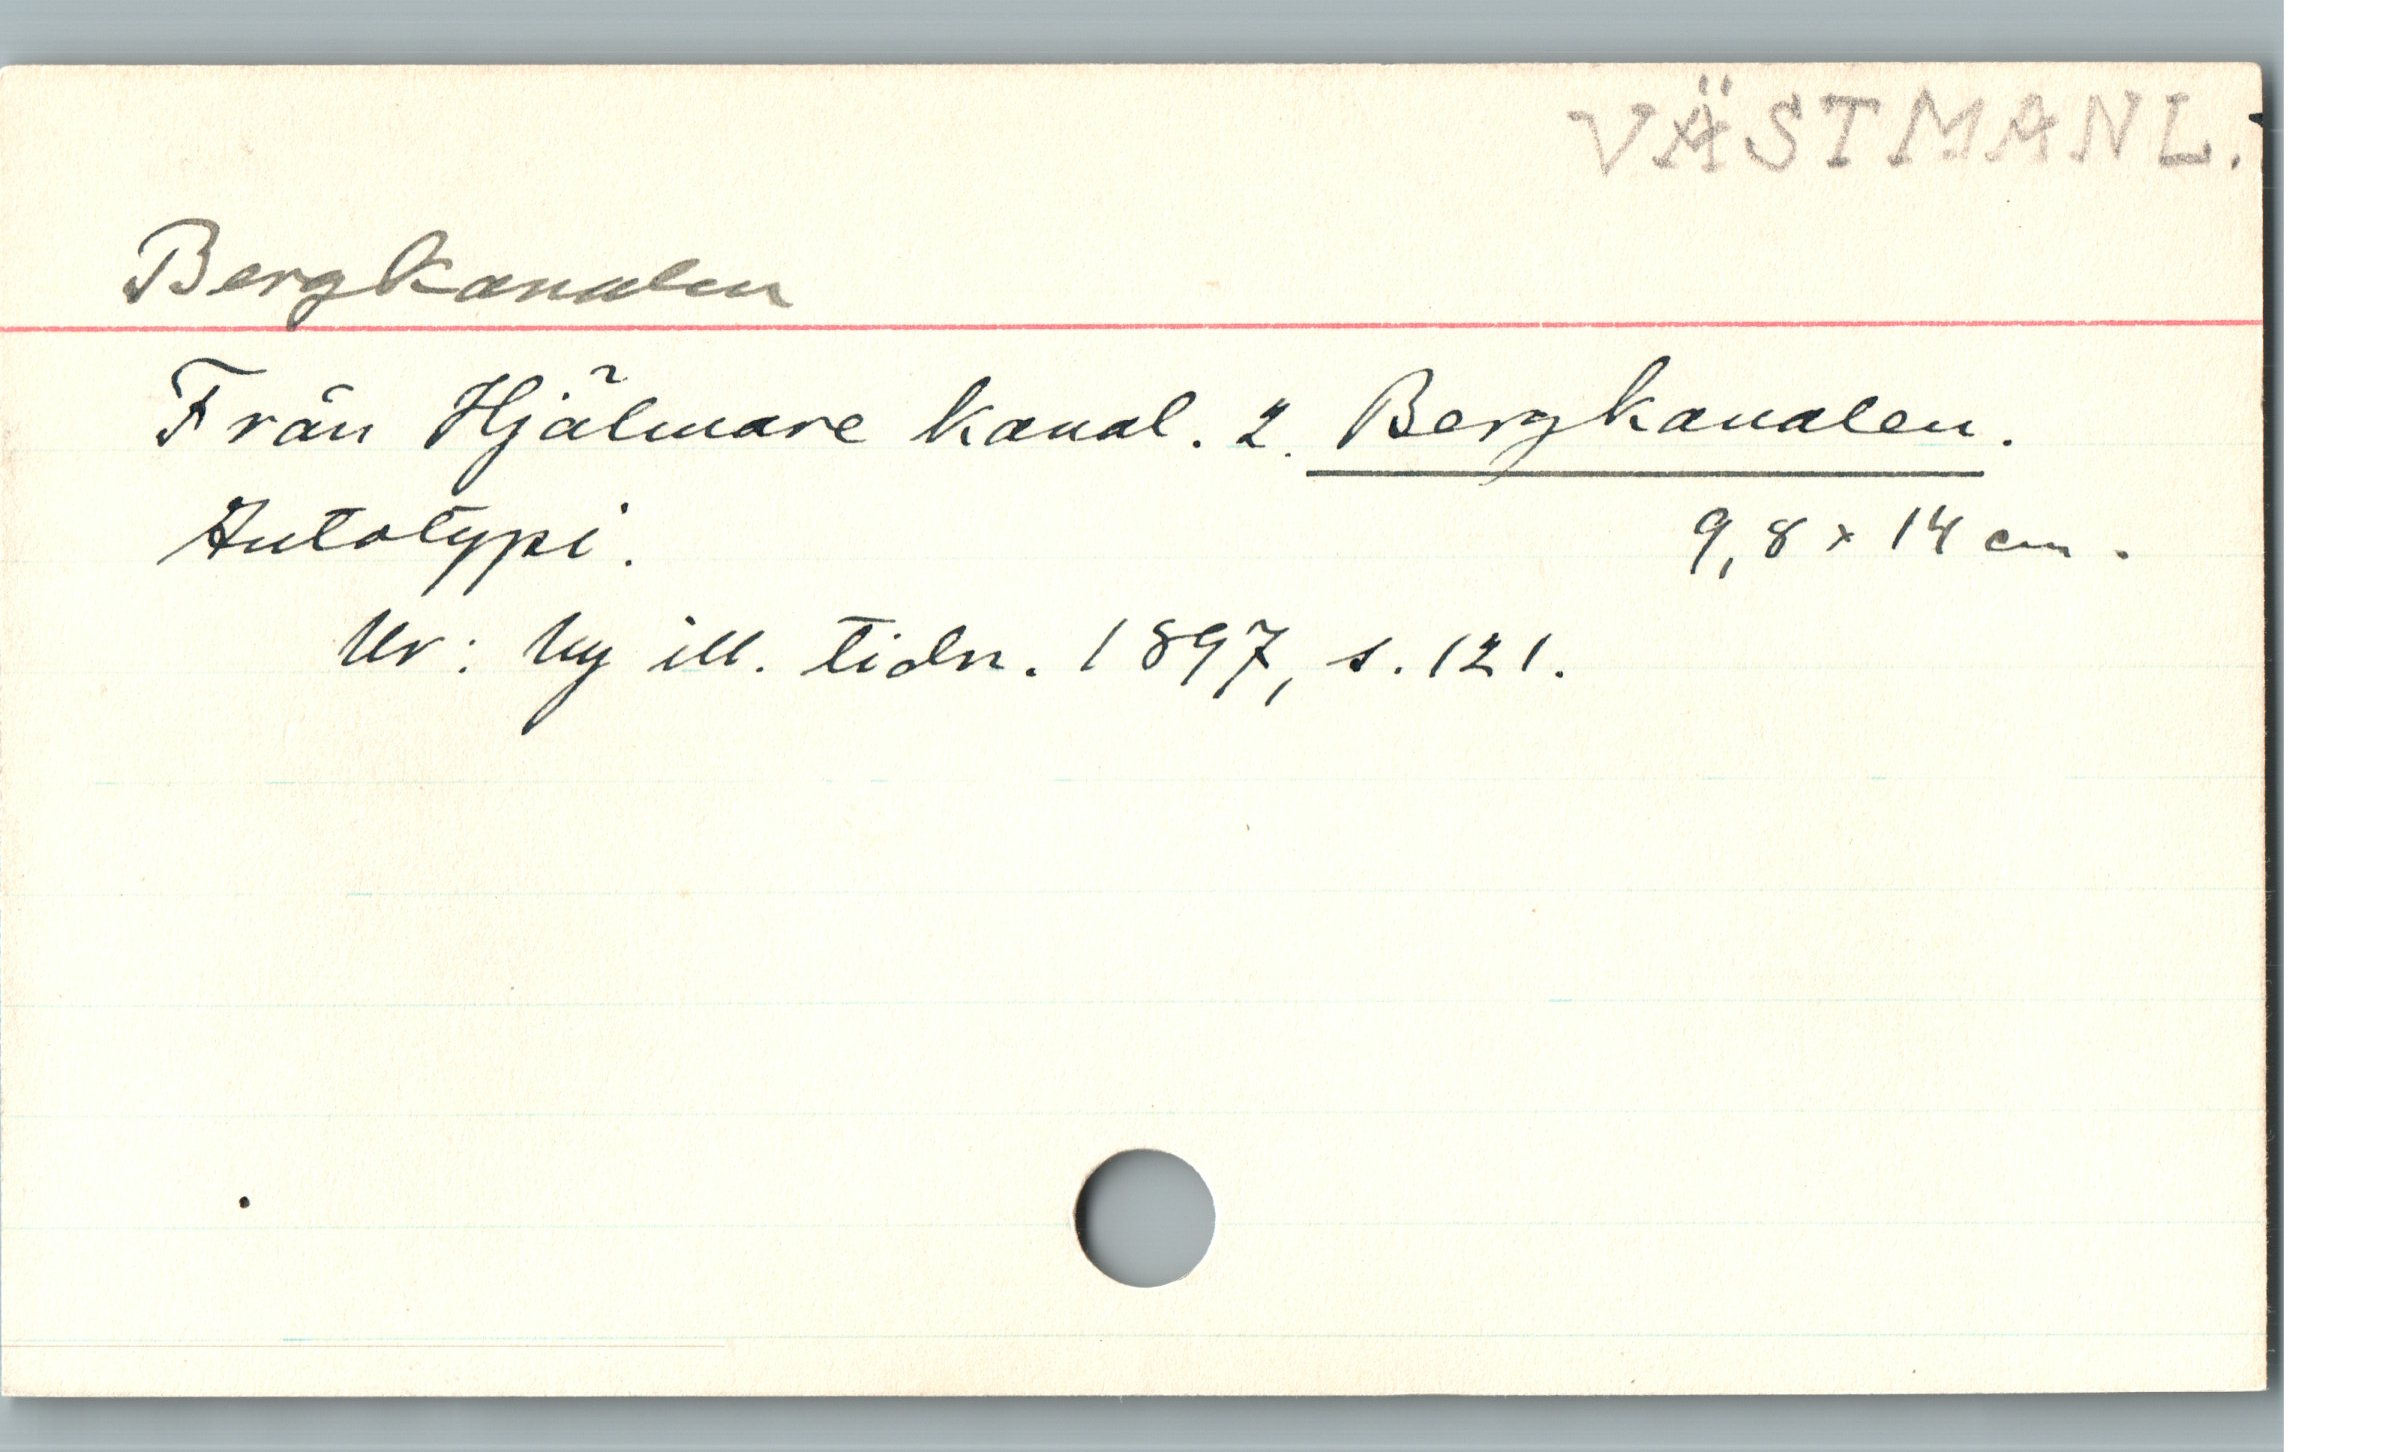 VÄSTMANL.
Bergkanalen
Från Hjälmare kanal. 2. Bergkanalen.
Autotypi. 9,8 x 14 cm.
Ur: Ny ill. tidn. 1897, s. 121.